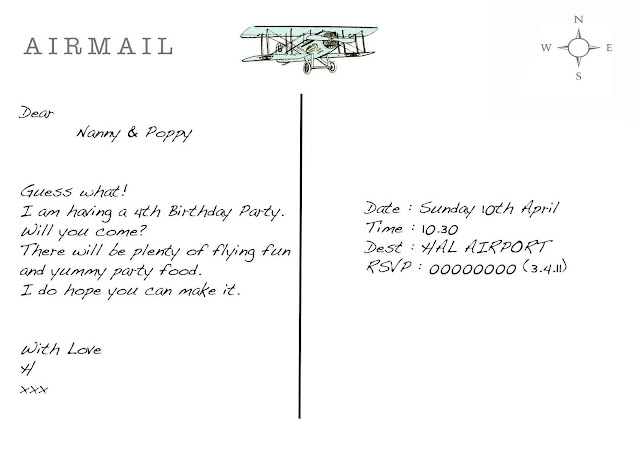 AIRMAIL
N
W E
S
Dear
Nanny & Poppy
Guess what!
I am having a 4th Birthday Party.
Will you come?
There will be plenty of flying fun
and yummy party food.
I do hope you can make it.
With Love
H
xxx
Date : Sunday 10th April
Time : 10.30
Dest : HAL AIRPORT
RSVP : 00000000 (3.4.11)